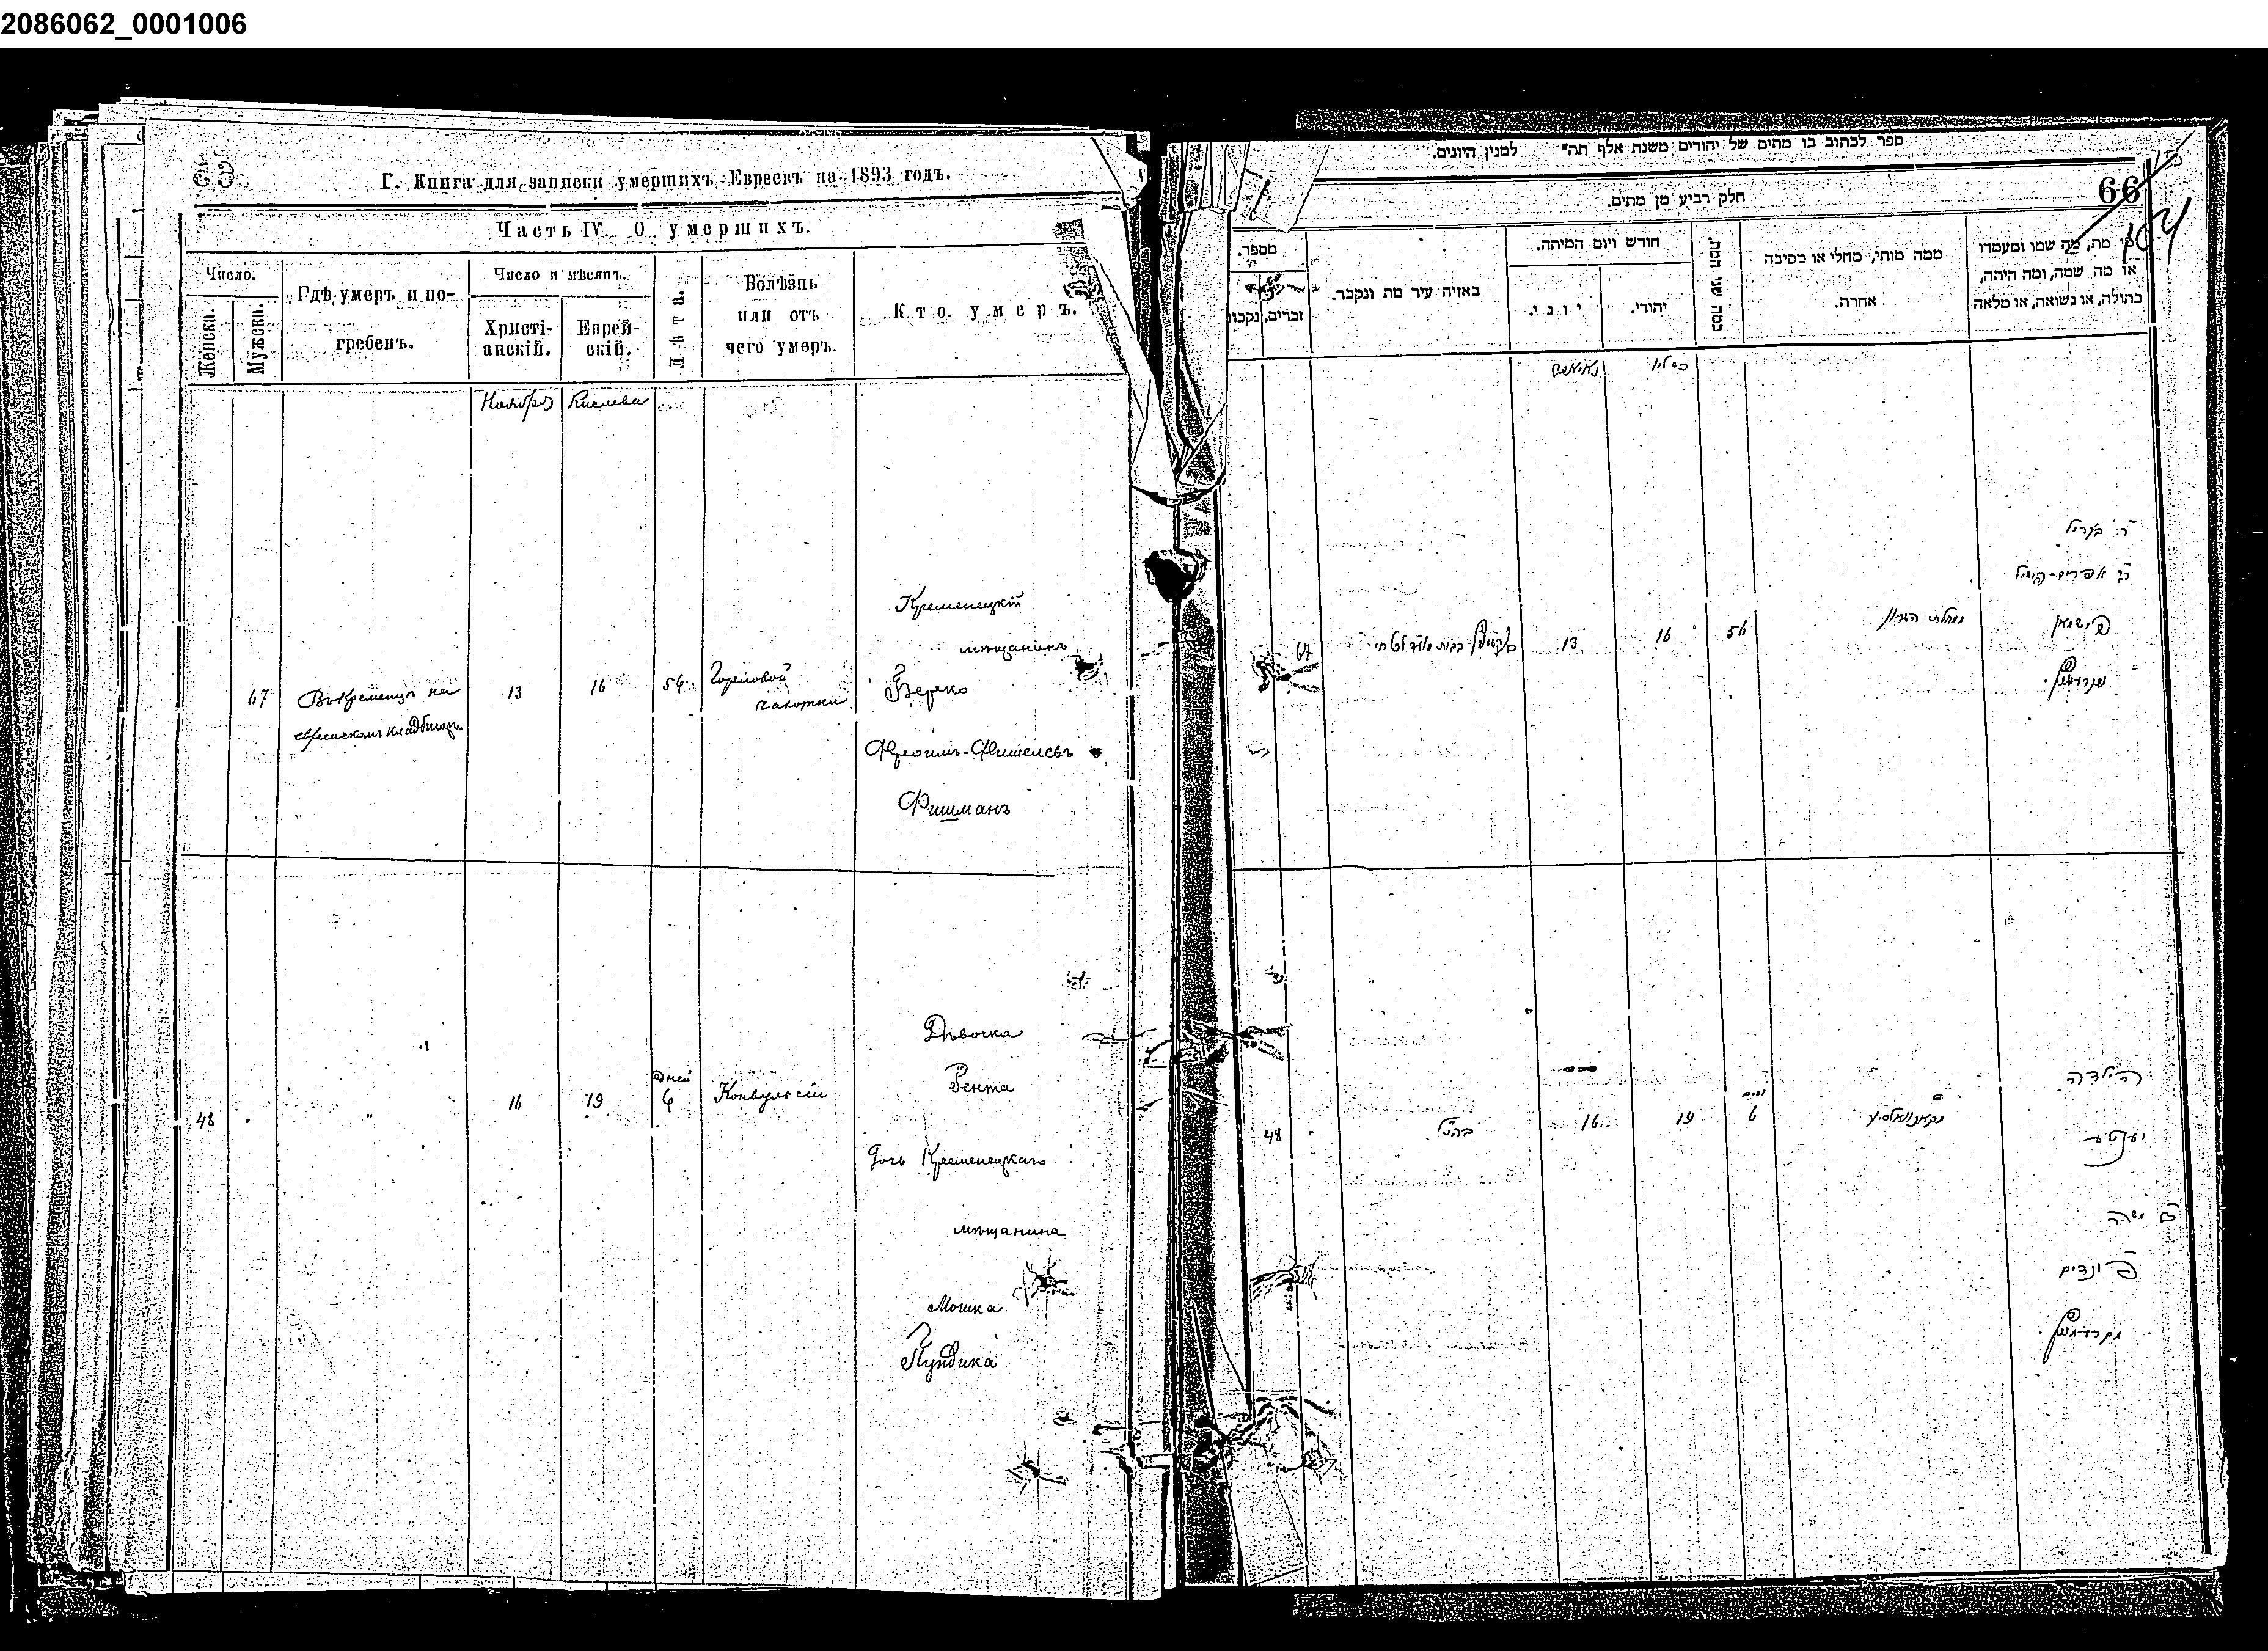 2086062_0001006
Г. Книга для записки умершихъ Евреевъ на 1893 годъ.
Часть IV. О умершихъ.
Число.
Женска.
Мужеска.
Гдѣ умеръ и по-
гребенъ.
Число и мѣсяцъ.
Христі-
анскій.
Еврей-
скій.
Лѣта.
Болѣзнь
или отъ
чего умеръ.
Кто умеръ.
Ноября
Кислева
67
Въ Кременцѣ на
еврейскомъ кладбищѣ
13
16
56
Горловой
чахотки
Кременецкій
мѣщанинъ
Берко
Фроимъ-Фишелевъ
Фишманъ
48
"
16
19
дней
6
Конвульсіи
Дѣвочка
Дочь Кременецкаго
мѣщанина
Мошка
Пундика
ספר לכתוב בו מתים של יהודים משנת אלף תת" למנין היונים.
66
104
חלק רביע מן מתים.
מספר.
זכרים.
נקבות
באיזה עיר מת ונקבר.
חודש ויום המיתה.
יוני.
יהודי.
כמה שני המת.
ממה מותי, מחלי או מסיבה
אחרת.
מי מת, מה שמו ומעמדו
או מה שמה, ומה היתה,
בתולה, או נשואה, או מלאה
כסליו
67
13
16
56
מחלת הגרון
ר' בעריל
פישמאן
48
בהנ"ל
16
19
ימים
6
הילדה
יענטע
משה
פונדיק